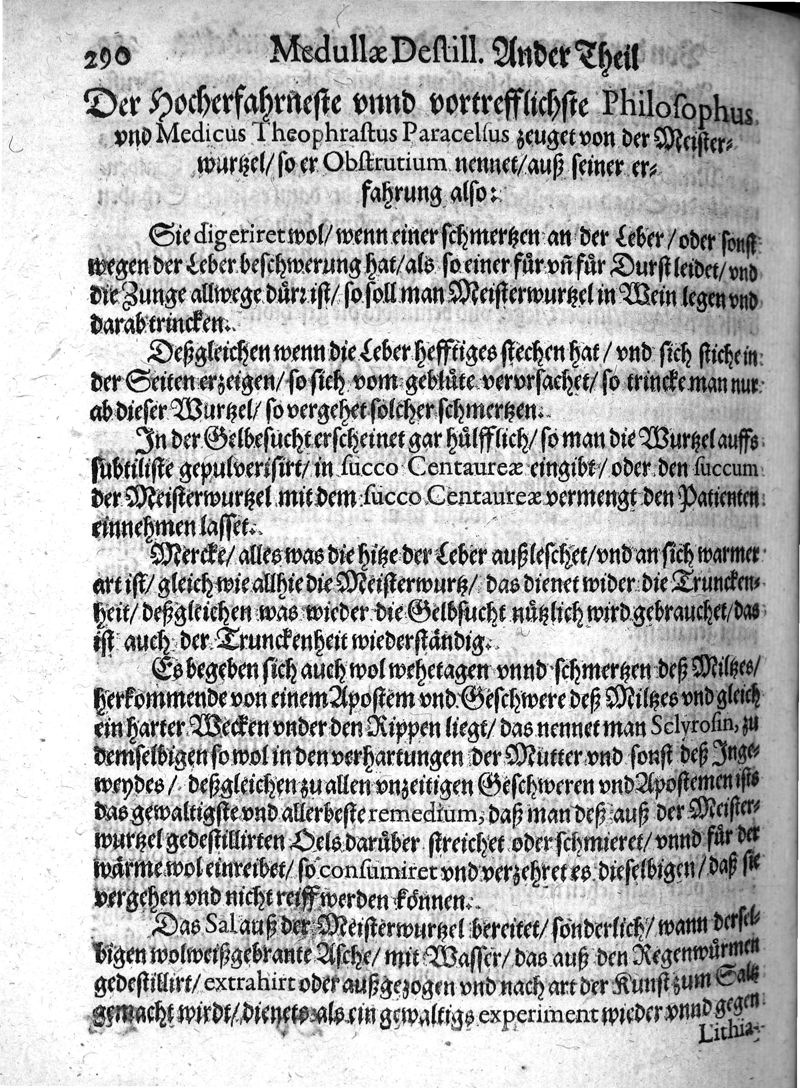 290 Medullæ Destill. Ander Theil
Der Hocherfahrneste vnnd vortrefflichste Philosophus
vnd Medicus Theophrastus Paracelsus zeuget von der Meister-
wurtzel/ so er Obstrutium nennet/ auß seiner er-
fahrung also:
Sie digeriret wol/ wenn einer schmertzen an der Leber/ oder sonst
wegen der Leber beschwerung hat/ als so einer für vñ für Durst leidet/ vnd
die Zunge allwege dürꝛ ist/ so soll man Meisterwurtzel in Wein legen vnd
darab trincken.
Deßgleichen wenn die Leber hefftiges stechen hat/ vnd sich stiche in
der Seiten erzeigen/ so sich vom geblüte vervrsachet/ so trincke man nur
ab dieser Wurtzel/ so vergehet solcher schmertzen.
In der Gelbesucht erscheinet gar hülfflich/ so man die Wurtzel auffs
subtiliste gepulverisirt/ in succo Centaureæ eingibt/ oder den succum
der Meisterwurtzel mit dem succo Centaureæ vermengt den Patienten
einnehmen lasset.
Mercke/ alles was die hitze der Leber außleschet/ vnd an sich warmer
art ist/ gleich wie allhie die Meisterwurtz/ das dienet wider die Truncken-
heit/ deßgleichen was wieder die Gelbsucht nützlich wird gebrauchet/ das
ist auch der Trunckenheit wiederständig.
Es begeben sich auch wol wehetagen vnnd schmertzen deß Miltzes/
herkommende von einem Apostem vnd Geschwere deß Miltzes vnd gleich
ein harter Wecken vnder den Rippen liegt/ das nennet man Sclyrosin, zu
demselbigen so wol in den verhartungen der Mutter vnd sonst deß Inge-
weydes/ deßgleichen zu allen vnzeitigen Geschweren vnd Apostemen ists
das gewaltigste vnd allerbeste remedium, daß man deß auß der Meister-
wurtzel gedestillirten Oels darüber streichet oder schmieret/ vnnd für der
wärme wol einreibet/ so consumiret vnd verzehret es dieselbigen/ daß sie
vergehen vnd nicht reiff werden können.
Das Sal auß der Meisterwurtzel bereitet/ sonderlich/ wann dersel-
bigen wolweißgebrante Asche/ mit Wasser/ das auß den Regenwürmen
gedestillirt/ extrahirt oder außgezogen vnd nach art der Kunst zum Saltz
gemacht wirdt/ dienets als ein gewaltigs experiment wieder vnnd gegen
Lithia-